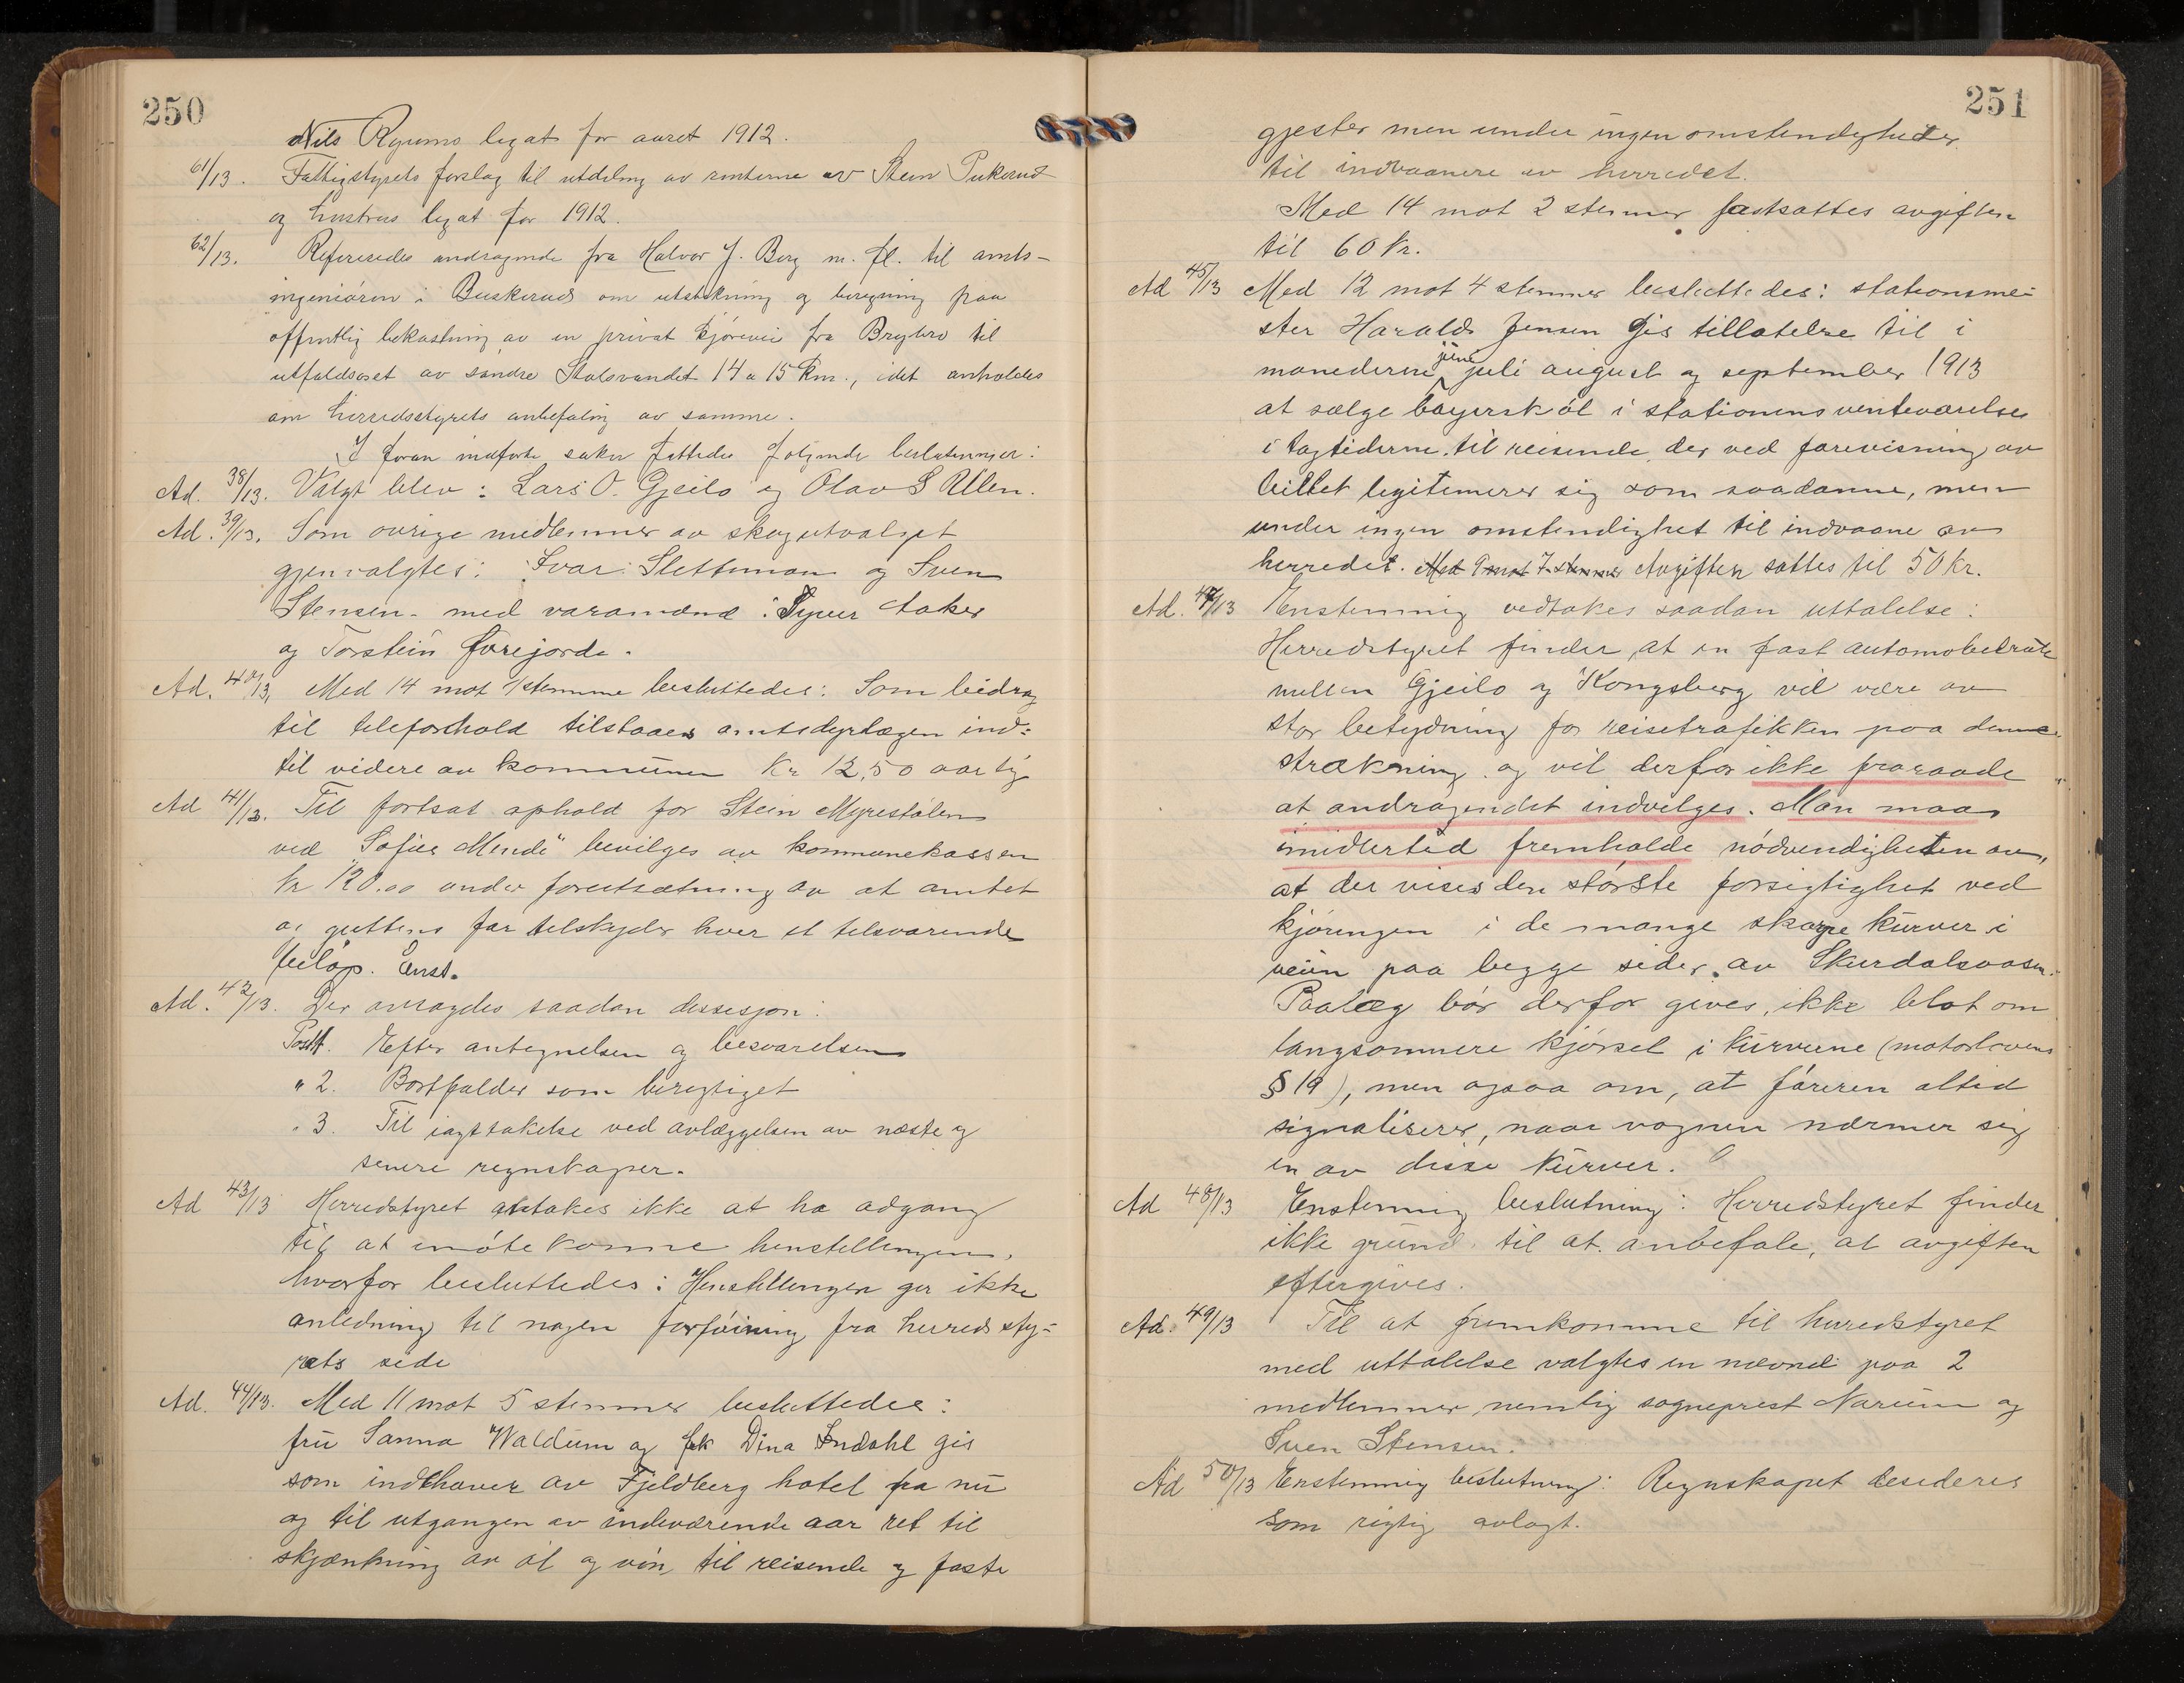 250
Nils Ryums legat for aaret 1912.
61/13. Fattigstyrets forslag til utdeling av renterne av Stein Pukerud
og hustrus legat for 1912.
62/13. Refereredes andragende fra Halvor J. Berg m. fl. til amts-
ingeniøren i Buskerud om utstikning og beregning paa
offentlig bekostning av en privat kjørevei fra Brybro til
utfaldsoset av søndre Stolsvandet 14 a 15 km., idet anholdes
om herredsstyrets anbefaling av samme.
I foran indførte saker fattedes følgende beslutninger:
Ad. 38/13. Valgt blev: Lars O. Gjeilo og Olav S Ullen.
Ad. 39/13. Som øvrige medlemmer av skogutvalget
gjenvalgtes: Ivar Slettemoen og Sven
Stensen - med varamænd: Syver Aaker
og Torstein Førejorde.
Ad. 40/13. Med 14 mot 1 stemme besluttedes: Som bidrag
til telefonhold tilstaaes amtsdyrlægen ind-
til videre av kommunen kr 12,50 aarlig
Ad 41/13. Til fortsat ophold for Stein Myrestølen
ved "Sofies Minde" bevilges av kommunekassen
kr 120.00 under forutsætning av at amtet
og guttens far tilskyder hver et tilsvarende
beløp. Enst.
Ad. 42/13. Der avsagdes saadan dessesjon:
Post 1. Efter antegnelsen og besvarelsen
" 2. Bortfalder som berigtiget
" 3. Til iagttakelse ved avlæggelsen av næste og
senere regnskaper.
Ad 43/13 Herredstyret antakes ikke at ha adgang
til at imøtekomme henstillingen,
hvorfor besluttedes: Henstillingen gir ikke
anledning til nogen forføining fra herredssty-
rets side
Ad. 44/13. Med 11 mot 5 stemmer besluttedes:
fru Sanna Waldum og frk Dina Indahl gis
som indehaver av Fjeldberg hotel fra nu
og til utgangen av indeværende aar ret til
skjænkning av øl og vin til reisende og faste
251
gjester men under ingen omstendigheter
til indvaanere av herredet.
Med 14 mot 2 stemmer fastsattes avgiften
til 60 kr.
Ad 45/13 Med 12 mot 4 stemmer besluttedes: stationsmei-
ster Harald Jensen gis tillatelse til i
manederne juni juli august og september 1913
at sælge bayersk øl i stationens venteværelse
i togtiderne til reisende, der ved forevisning av
billet legitimerer sig som saadanne, men
under ingen omstendighet til indvaane av
herredet. Med 9 mot 7 stemmer Avgiften sattes til 50 kr.
Ad. 47/13 Enstemmig vedtokes saadan uttalelse:
Herredstyret finder, at en fast automobilrute
mellem Gjeilo og Kongsberg vil være av
stor betydning for reisetrafikken paa denne
strækning og vil derfor ikke fraraade
at andragendet indvilges. Man maa
imidlertid fremholde nødvendigheten av,
at der vises den største forsigtighet ved
kjøringen i de mange skarpe kurver i
veien paa begge sider av Skurdalsaasen.
Paalæg bør derfor gives, ikke blot om
langsommere kjørsel i kurverne (motorlovens
§ 19), men ogsaa om, at føreren altid
signaliserer, naar vognen nærmer sig
en av disse kurver.
Ad 48/13 Enstemmig beslutning: Herredstyret finder
ikke grund til at anbefale, at avgiften
eftergives.
Ad. 49/13 Til at fremkomme til herredstyret
med uttalelse valgtes en nævnd paa 2
medlemmer nemlig sogneprest Narum og
Sven Stensen.
Ad 50/13 Enstemmig beslutning: Regnskapet desideres
som rigtig avlagt.